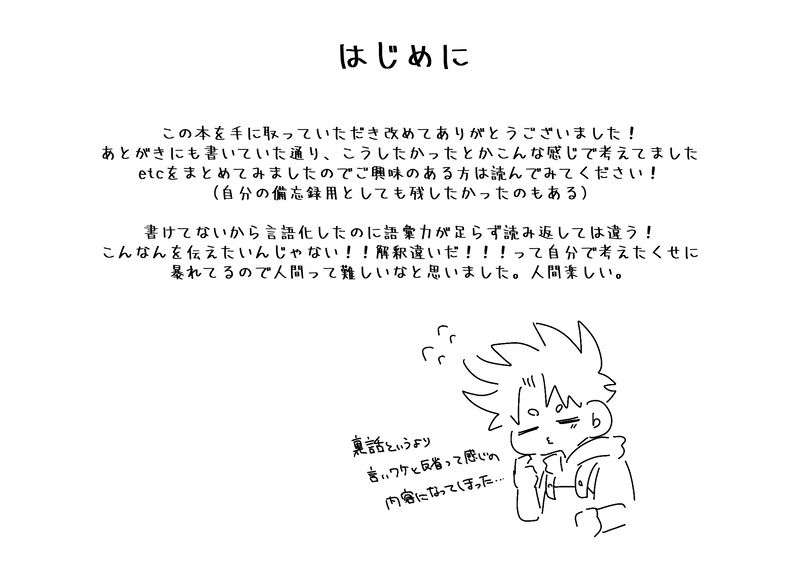 はじめに
この本を手に取っていただき改めてありがとうございました！
あとがきにも書いていた通り、こうしたかったとかこんな感じで考えてました
etcをまとめてみましたのでご興味のある方は読んでみてください！
（自分の備忘録用としても残したかったのもある）
書けてないから言語化したのに語彙力が足らず読み返しては違う！
こんなんを伝えたいんじゃない！！解釈違いだ！！！って自分で考えたくせに
暴れてるので人間って難しいなと思いました。人間楽しい。
裏話というより
言いワケと反省って感じの
内容になってしまった…